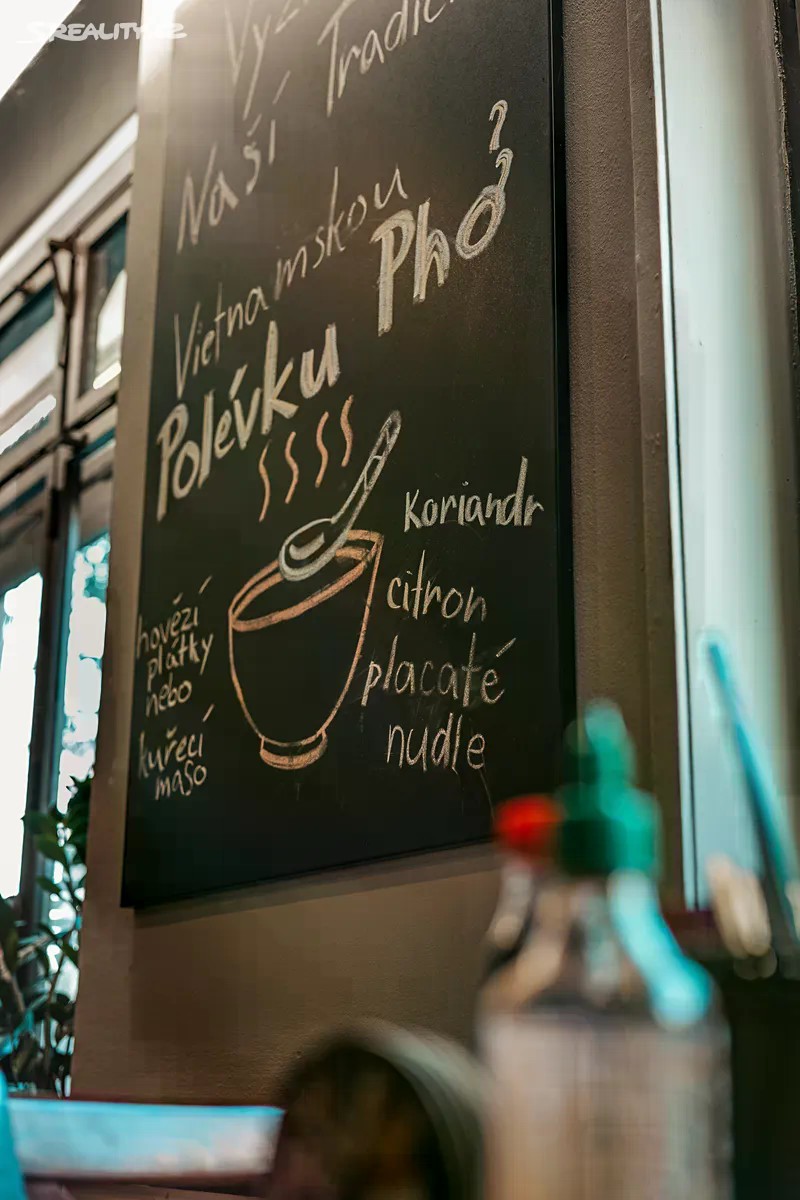 SREALITY.CZ
Tradič
Naší
Vietnamskou
Polévku Phở
Koriandr
citron
placaté
nudle
hovězí
plátky
nebo
kuřecí
maso